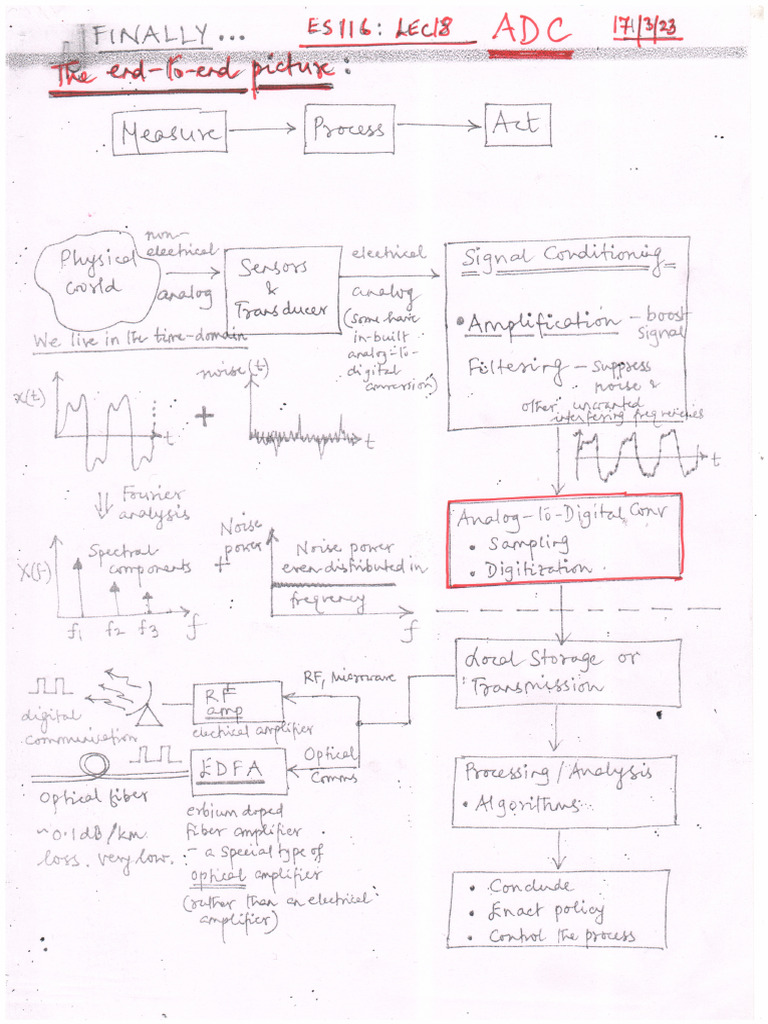 FINALLY... ES116: LEC18 ADC 17/3/23
The end-to-end picture:
Measure
Process
Act
Physical
world
non-
electrical
analog
Sensors
&
Transducer
electrical
analog
(some have
in-built
analog-to-
digital
conversion)
Signal Conditioning
• Amplification - boost
signal
Filtering - suppress
noise &
other unwanted
interfering frequencies
We live in the time-domain
x(t)
t
+
noise(t)
t
t
Fourier
analysis
X(f)
Spectral
components
f1 f2 f3 f
+
Noise
power
Noise power
even distributed in
frequency
f
Analog-to-Digital Conv
• Sampling
• Digitization.
Local Storage or
Transmission
RF, Microwave
RF
amp
electrical amplifier
digital
communication
Optical
Comms
EDFA
Optical fiber
~0.1dB/km.
loss. very low.
erbium doped
fiber amplifier.
- a special type of
optical amplifier
(rather than an electrical
amplifier)
Processing/Analysis
• Algorithms
• Conclude
• Enact policy
• Control the process